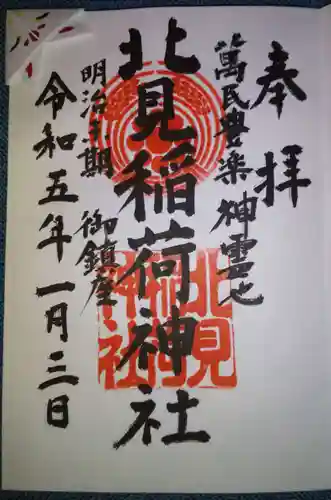 奉拝
萬民豊楽神霊也
北見稲荷神社
明治末期 御鎮座
令和五年一月三日
北見
稲荷
神社